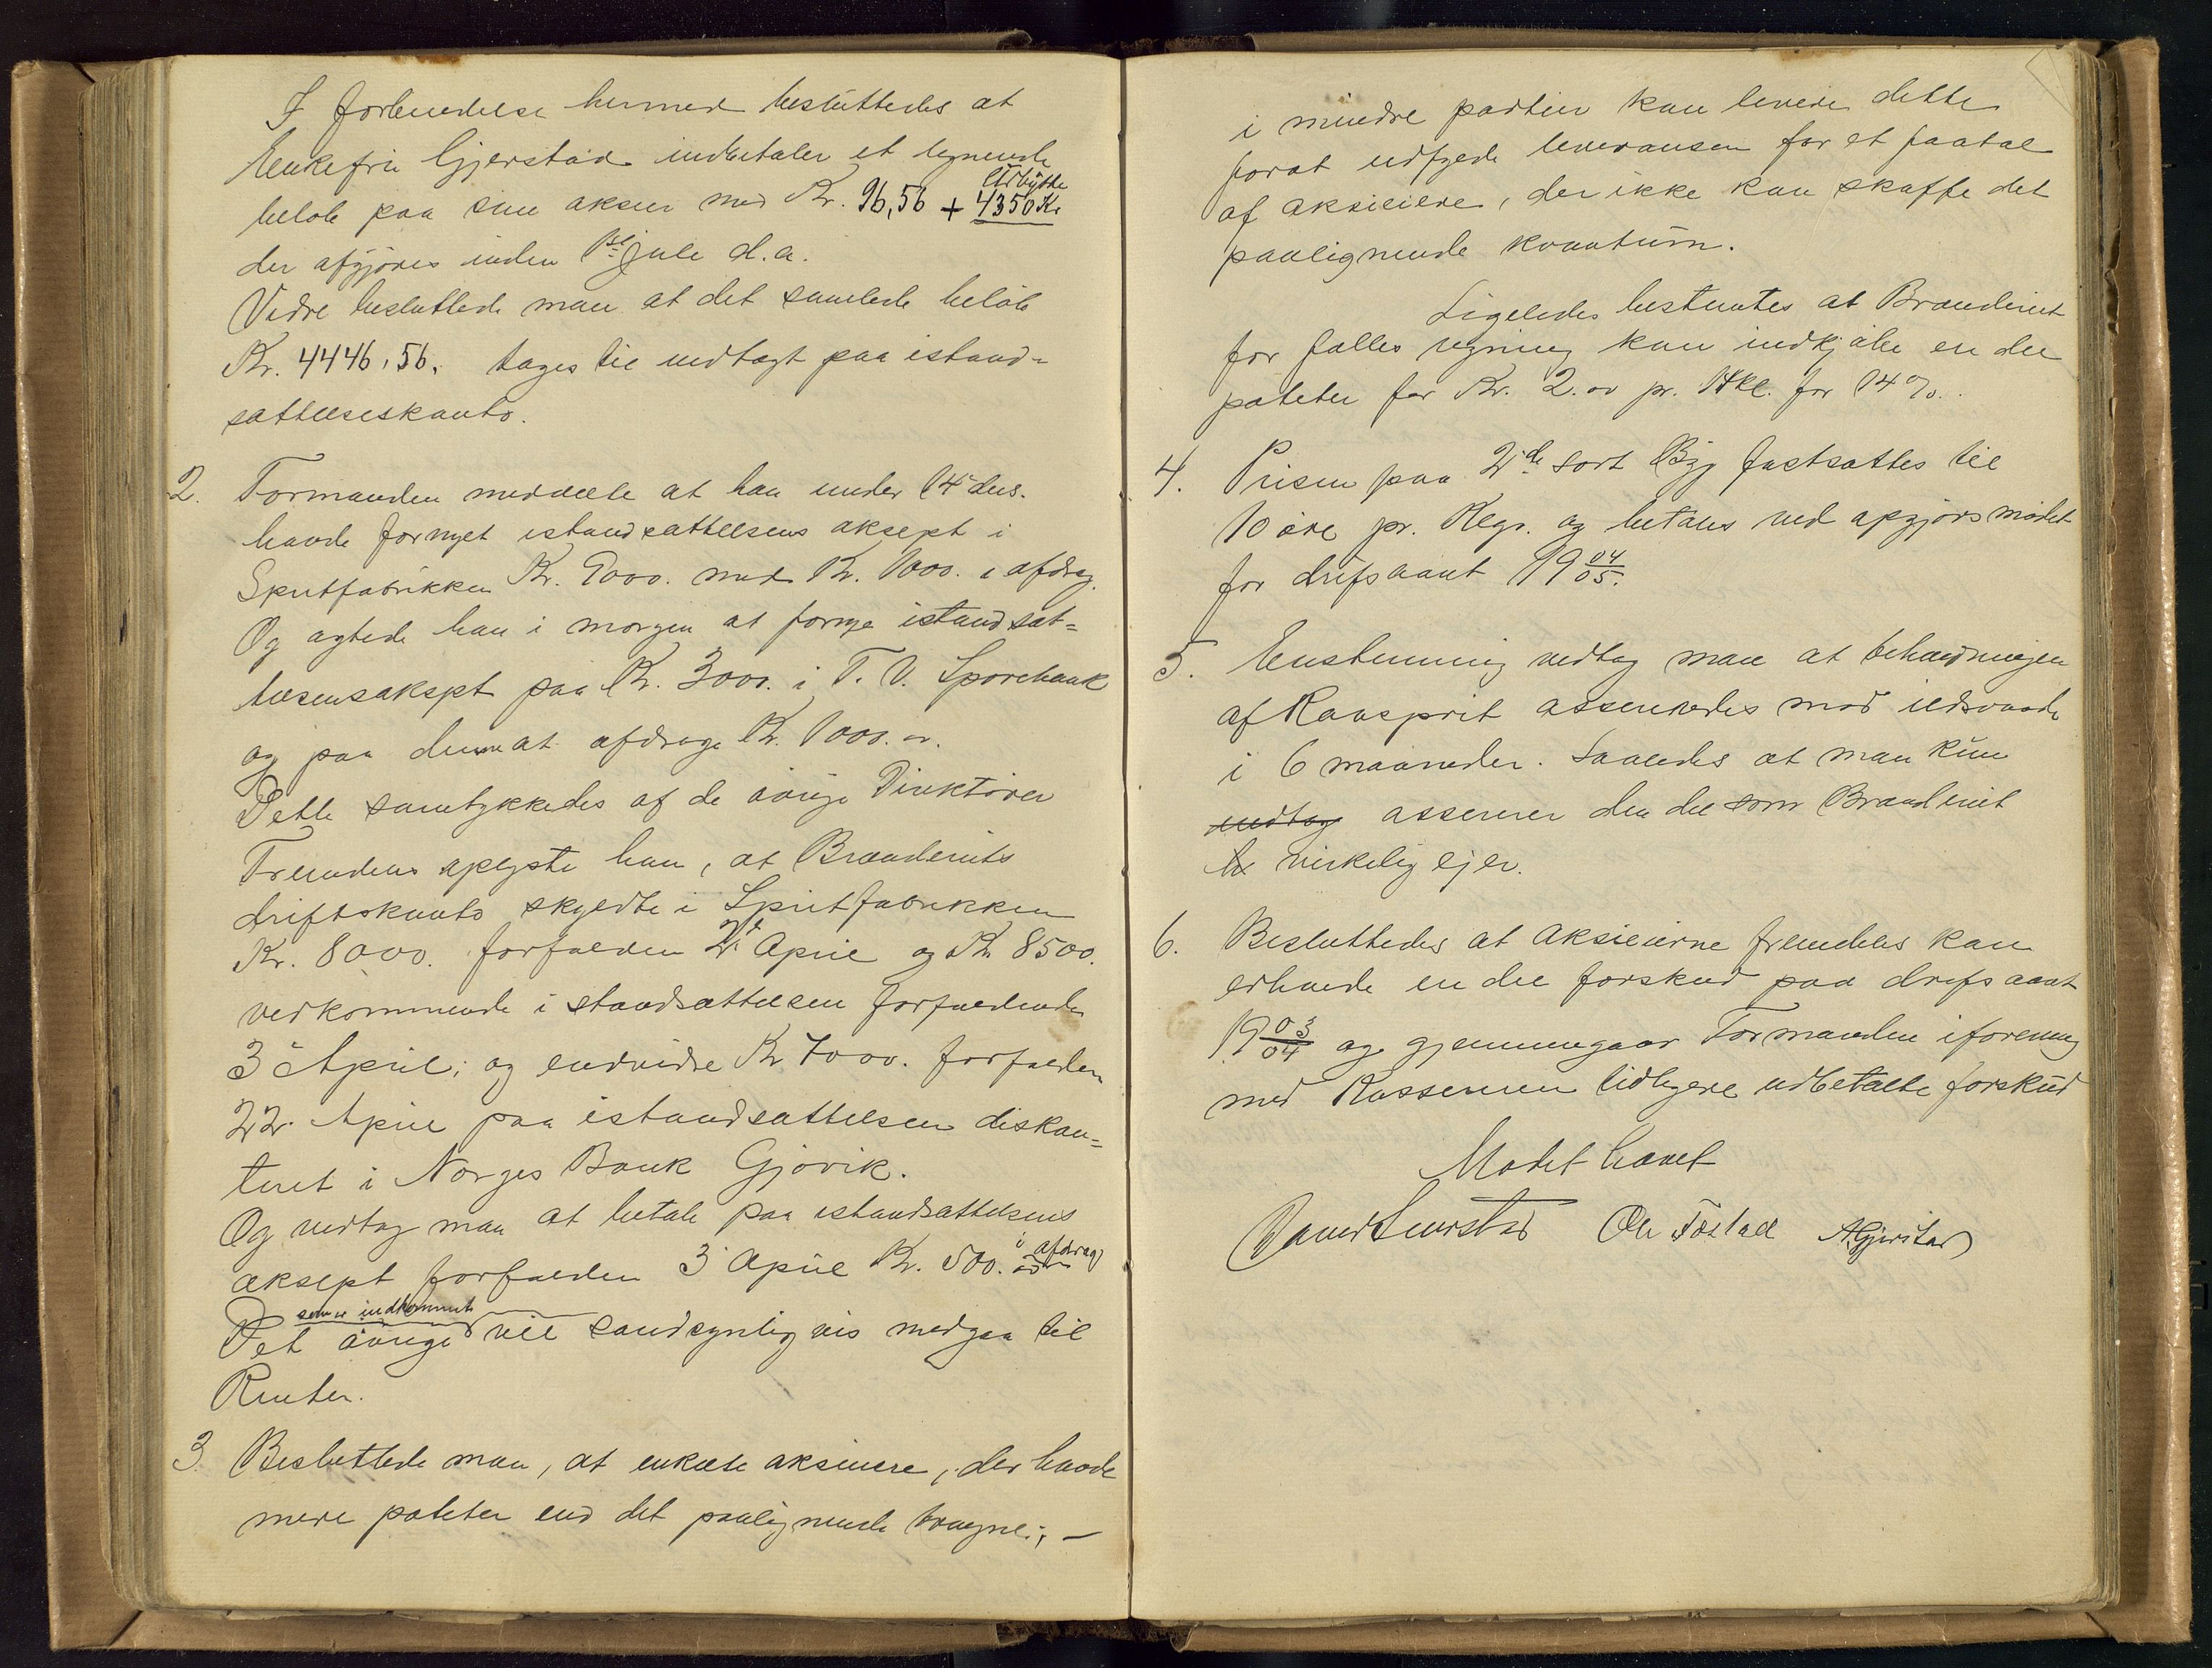 I forbindelse hermed besluttedes at
Enkefru Gjerstad indbetaler et lignende
beløb paa sine aksier med Kr. 96,56 + 4350 Kr Udbytte
der afgjøres inden 1ste Juli d.a.
Videre besluttede man at det samlede beløb
Kr. 4446,56. tages til indtægt paa istand-
sættelseskonto.
2. Formanden meddelte at han under 14 ds.
havde fornyet istandsættelsens aksept i
Spritfabrikken Kr. 9000. med Kr. 1000. i afdrag.
Og agtede han i morgen at forny istandsæt=
telsensaksept paa Kr. 3000. i T. V. Sparebank
og paa denne at afdrage Kr. 1000.00.
Dette samtykkedes af de øvrige Direktører
Fremdeles oplyste han, at Brænderiets
driftskonto skyldte i Spritfabrikken
Kr. 8000. forfalden 2t April og Kr 8500.
vedkommende istandsættelsen forfaldende
3 April; og endvidre Kr 7000. forfalden
22. April paa istandsættelsen diskon=
teret i Norges Bank Gjøvik.
Og vedtog man at betale paa istandsættelsens
aksept forfalden 3 April Kr. 500. i afdrag
Det øvrige som er indkommet vil sandsynligvis medgaa til
Renter.
3. Besluttede man, at enkelte aksieiere, der havde
mere poteter end det paalignende
i mindre partier kan levere dette
forat udfylde leveransen for et faatal
af aksieiere, der ikke kan skaffe det
paalignende kvantum.
Ligeledes bestemtes at Brænderiet
for fælles regning kan indkjøbe en del
poteter for Kr. 2.00 pr. Hkl. for 14 %.
4. Prisen paa 2de sort Byg fastsattes til
10 øre pr. Klgr. og betales ved opgjørsmødet
for drifsaaret 1904/05.
5. Enstemmig vedtog man at beholdningen
af Raasprit assureredes mod ildsvaade
i 6 maaneder. Saaledes at man kun
vedtog assurerer den del som Brænderiet
virkelig ejer.
6. Besluttedes at aksieierne fremdeles kan
erholde en del forskud paa drifsaaret
1903/04 og gjennemgaar Formanden iforening
med Kasseren tidligere udbetalte forskud
Mødet hævet
Ole Føstad A. Gjerstad